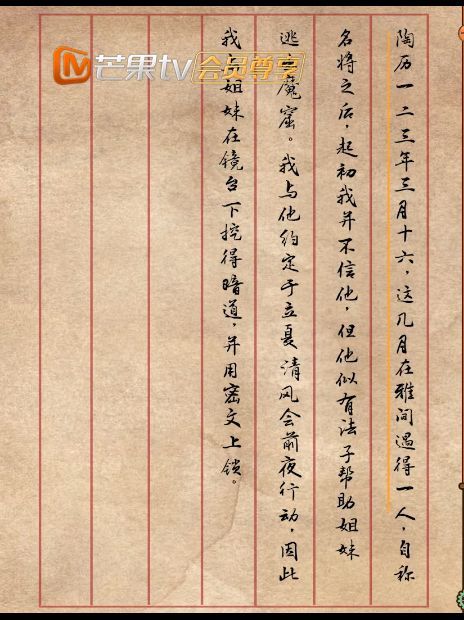 芒果tv
会员尊享
陶历一二三年三月十六，这几月在雅间遇得一人，自称
名将之后，起初我并不信他，但他似有法子帮助姐妹
逃 魔窟。我与他约定于立夏清风会前夜行动，因此
我 姐妹在镜台下挖得暗道，并用密文上锁。